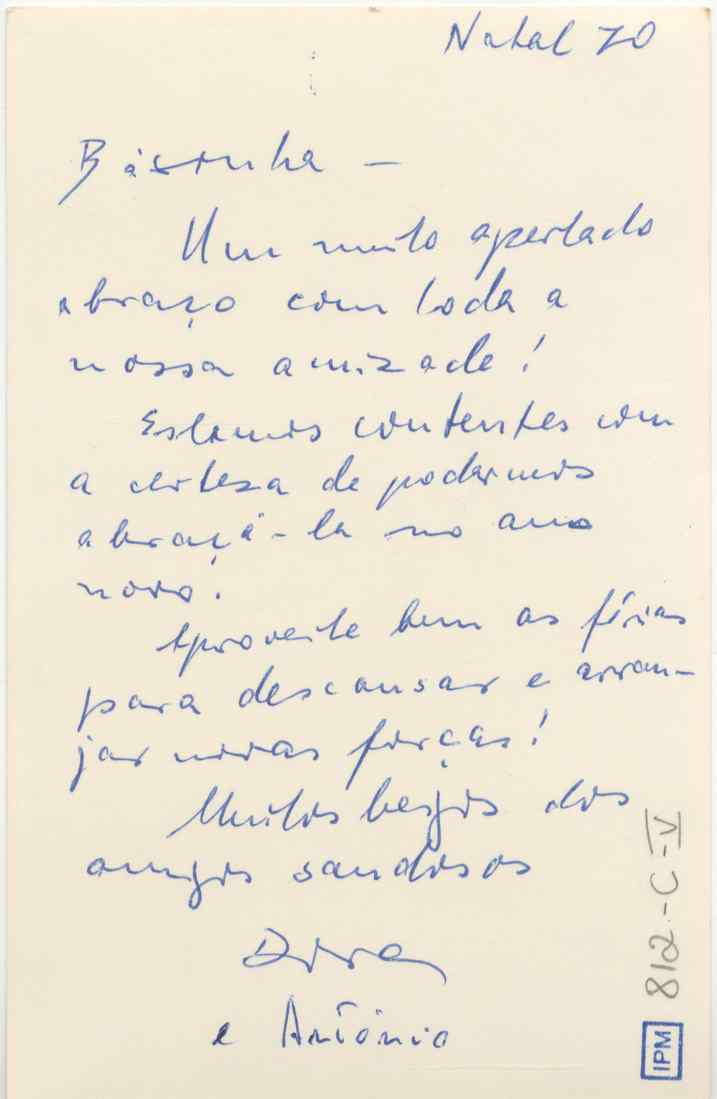 Natal 70
—
Um muito apertado
abraço com toda a
nossa amizade!
Estamos contentes com
a certeza de podermos
abraçá-la no ano
novo.
Aproveite bem as férias
para descansar e arran-
jar novas forças!
Muitos beijos dos
amigos saudosos
e António
812-C-V
IPM